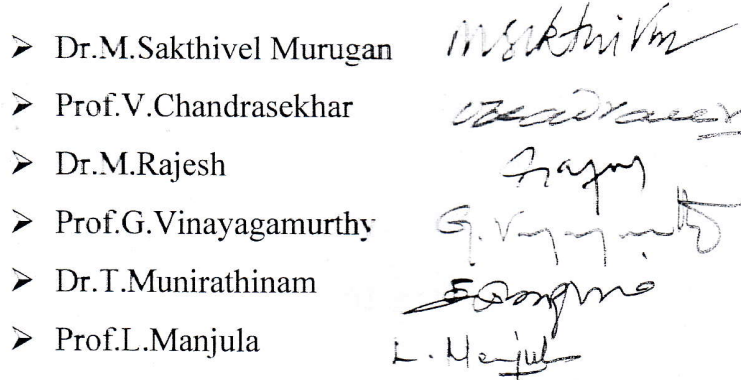 ➢ Dr.M.Sakthivel Murugan MSakthivm
➢ Prof.V.Chandrasekhar
➢ Dr.M.Rajesh
➢ Prof.G.Vinayagamurthy
➢ Dr.T.Munirathinam
➢ Prof.L.Manjula L. Manjula